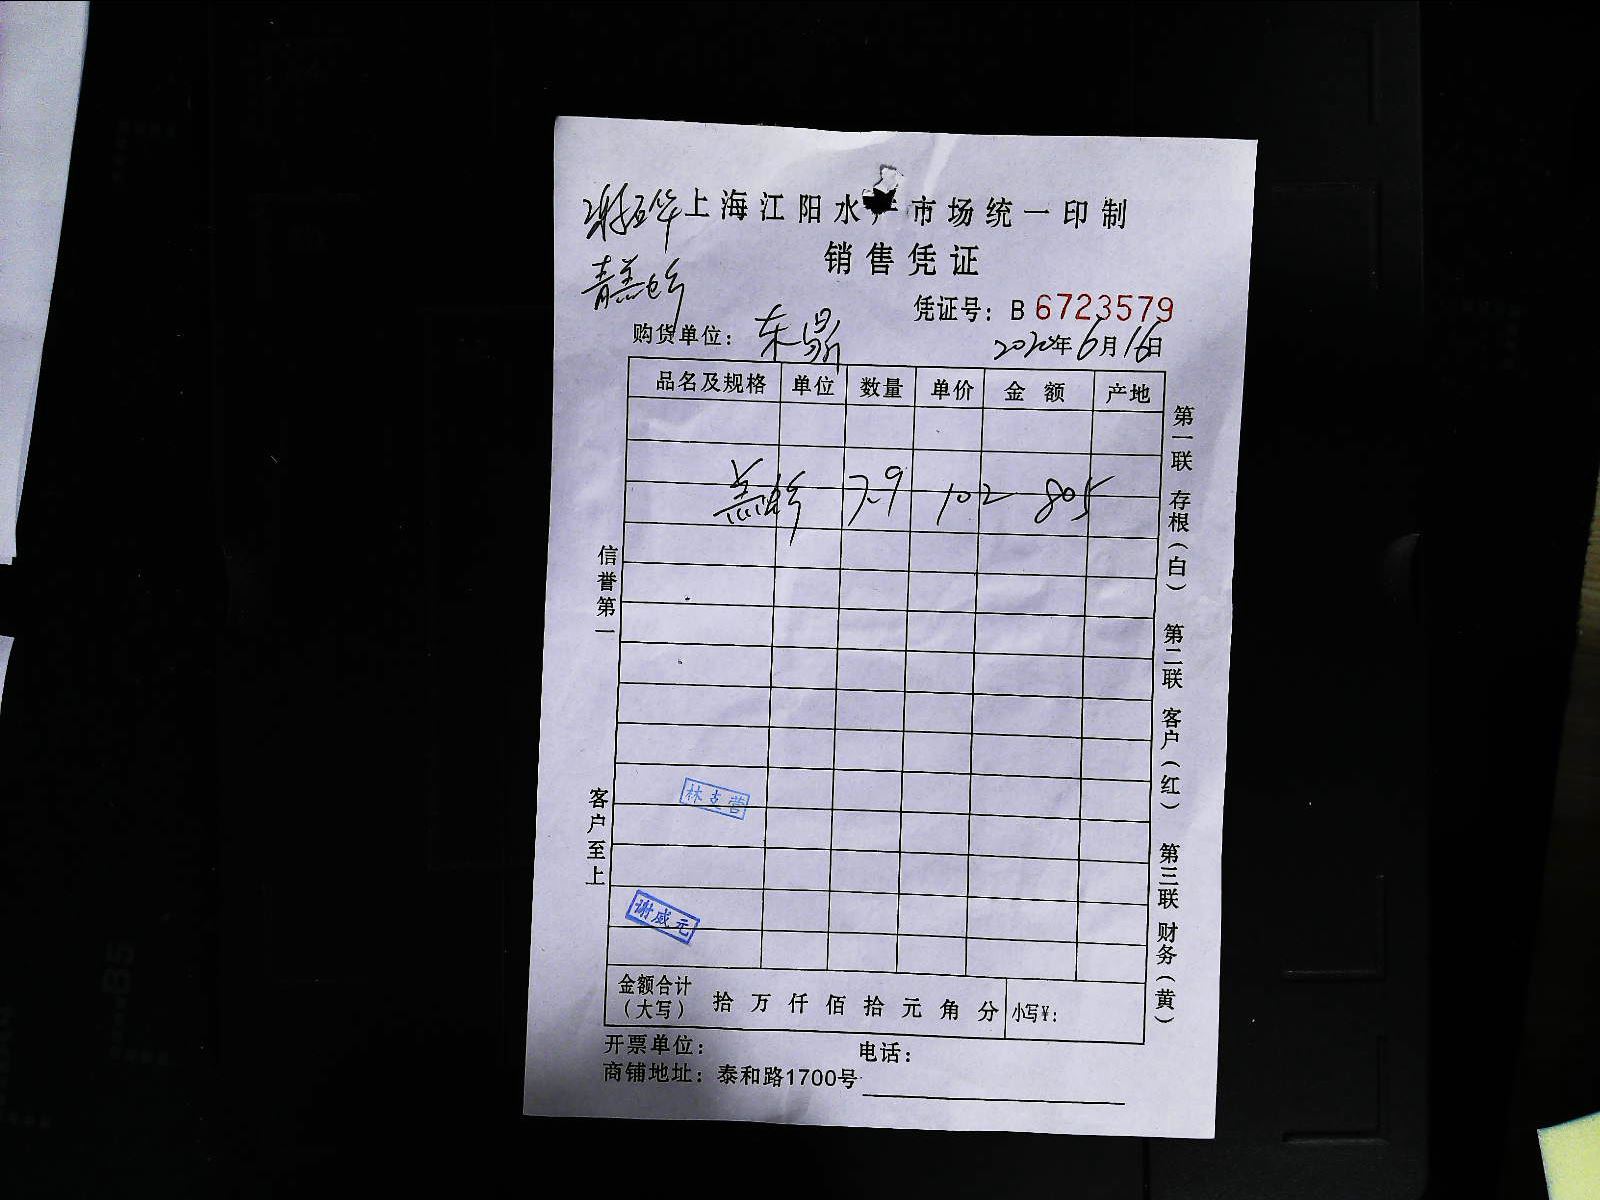 上海江阳水产市场统一印制
销售凭证
凭证号：B 6723579
购货单位：东鼎
2020年6月16日
品名及规格 单位 数量 单价 金额 产地
7.9 102 805
信誉第一
客户至上
第一联 存根（白）
第二联 客户（红）
第三联 财务（黄）
林支营
谢威元
金额合计（大写） 拾 万 仟 佰 拾 元 角 分 小写¥：
开票单位： 电话：
商铺地址：泰和路1700号